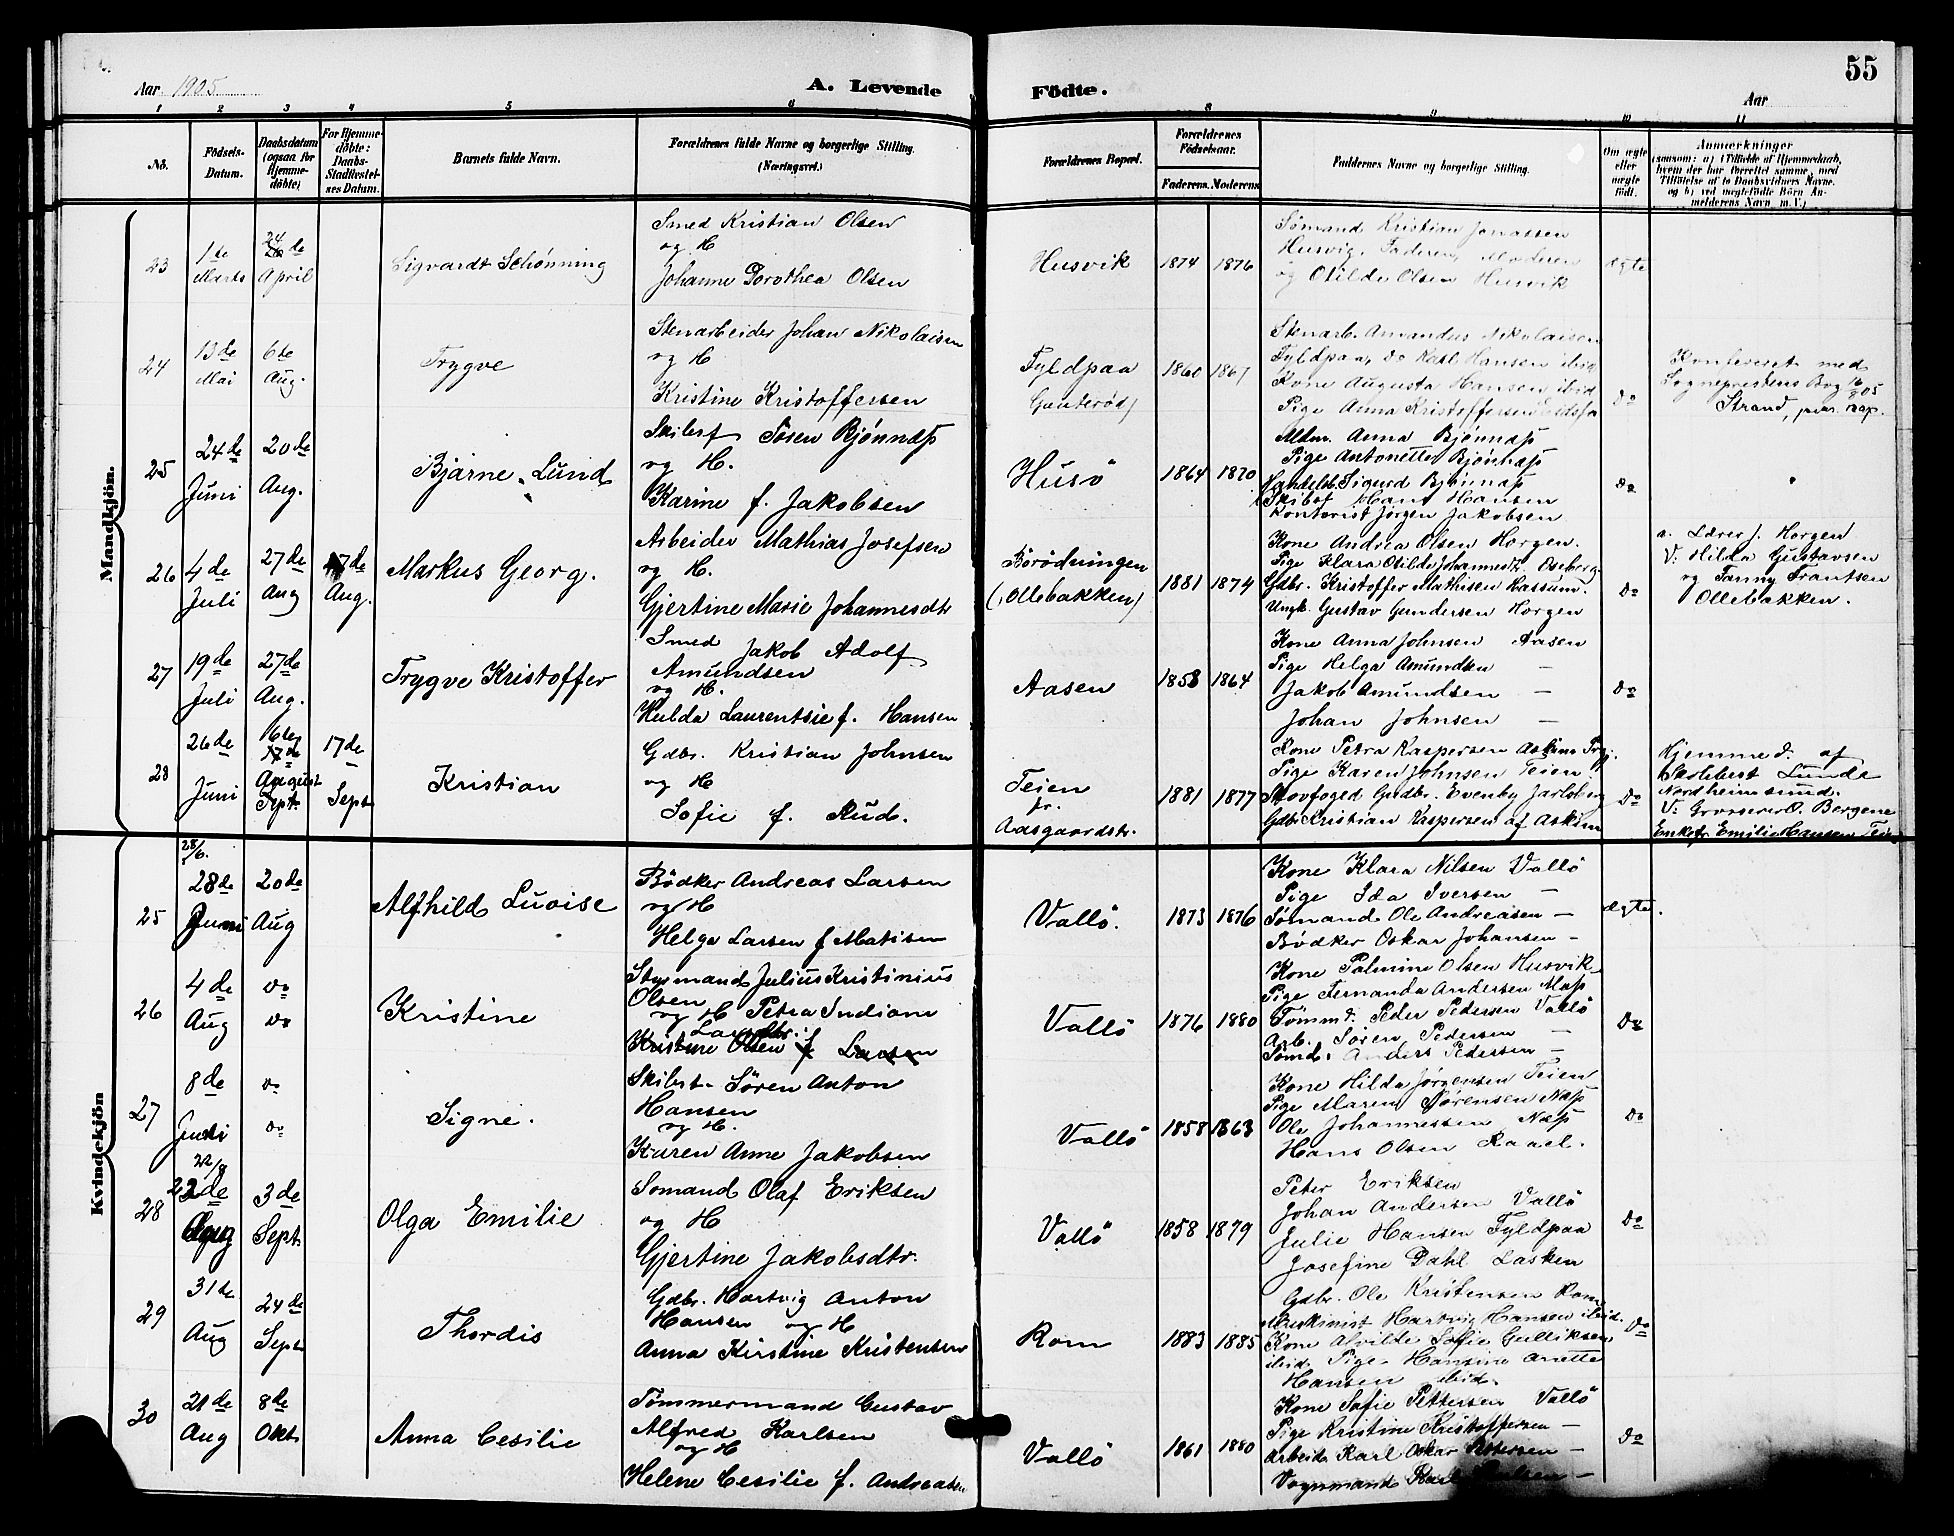 55
Aar 1905
A. Levende Födte.
Aar
1 2 3 4 5 6 8 9 10 11
No.
Födsels-Datum.
Daabsdatum (ogsaa for Hjemme-döbte)
For Hjemme-döbte: Daabs-Stadfæstel-ses Datum.
Barnets fulde Navn.
Forældrenes fulde Navne og borgerlige Stilling. (Næringsvei.)
Forældrenes Bopæl.
Forældrenes Födselsaar.
Faderens. Moderens.
Faddernes Navne og borgerlige Stilling.
Om ægte eller uægte født.
Anmærkninger
(saasom: a) i Tilfælde af Hjemmedaab,
hvem der har forrettet samme, med
Tilföielse af to Daabsvidners Navne.
og b) ved uægtefödte Börn An-
melderens Navn m. V.)
Mandkjön.
23
1de Marts
24de April
Sigvardt Schønning
Smed Kristian Olsen
og H
Johanne Dorothea Olsen
Husvik
1874 1876
Sømand Kristian Jonassen
Husvig, Faderen, Moderen
og Otilde Olsen Husvik
ægte
24
13de Mai
6te Aug.
Trygve
Stenarbeider Johan Nikolaisen
og H
Kristine Kristoffersen
Fyldpaa
Gunderød
1860 1867
Stenarb. Amandus Nikolaisen
Fyldpaa, do Karl Hansen ibid
Kone Augusta Hansen ibid
Pige Anna Kristoffersen
do
Konfereret med
Sogneprestens Bog 16/8 05
Strand, pers. cap.
25
24de Juni
20de Aug.
Bjarne Lund
Skibsf. Søren Bjønnæss
og H.
Karine f. Jakobsen
Husö
1864 1870
Anna Bjønnæss
Pige Antonette Bjønnæss
Handelsb. Sigurd Bjønnæss
Skibsf. Hans Hansen
Kontorist Jørgen Jakobsen
do
26
4de Juli
27de Aug
17de Aug.
Markus Georg.
Arbeider Mathias Josefsen
og H.
Gjertine Marie Johannesdtr
Børødningen
(Ollebakken)
1881 1874
Kone Andrea Olsen Horgen.
Pige Klara Otilde Johannesdtr. Oseberg
Gdbr. Kristoffer Mathisen Rassum.
Ungk. Gustav Gundersen Horgen
do
a. Lærer J. Horgen
V. Hilda Gustavsen
og Fanny Frantsen
Ollebakken.
27
19de Juli
27de Aug.
Trygve Kristoffer
Smed Jakob Adolf
Amundsen
og H.
Hulda Laurentsie f. Hansen
Aasen
1858 1864
Kone Anna Johnsen Aasen
Pige Helga Amundsen —
Jakob Amundsen —
Johan Johnsen —
do
28
26de Juni
16de
17de August
Sept.
17de Sept
Kristian
Gdbr. Kristian Johnsen
og H
Sofie f. Rud.
Teien
pr.
Aasgaardstr.
1881 1877
Kone Petra Kaspersen Askim
Pige Karen Johnsen Teien
Skovfoged Gudbr. Evenby Jarlsberg
Gdbr. Kristian Kaspersen af Askim
do
Hjemmed. af
Lunde
Nordheimsund.
V. Grosserer O. Bergene
Enkefr Emilie Hansen Teien
Kvindekjön
25
28/6.
28de Juni
20de Aug
Alfhild Luoise
Bödker Andreas Larsen
og H
Helga Larsen f Matisen
Vallö.
1873 1876
Kone Klara Nilsen Vallö
Pige Ida Iversen —
Sømand Ole Andreasen —
Bødker Oskar Johansen —
ægte.
26
4de Aug
do
do
Kristine
Styrmand Julius Kristinius
Olsen
og H Petra Indiane
Larsdtr.
Kristine Olsen f Larsen
Vallö
1876 1880
Kone Palmine Olsen Husvik
Pige Fernanda Andersen Næss
Tømmd. Peder Pedersen Vallö
Arb. Søren Pedersen —
Sömd. Anders Pedersen —
do
27
8de Juni
do
do
Signe.
Skibst. Sören Anton
Hansen
og H.
Karen Anne Jakobsen
Vallö
1858 1863
Kone Hilda Jørgensen Teien
Pige Maren Sørensen Næss
Ole Johannessen Næss
Hans Olsen Raael.
do
28
22/8
22de Aug
3de Sept.
Olga Emilie
Sømand Olaf Eriksen
og H
Gjertine Jakobsdtr.
Vallö
1858 1879
Peter Eriksen
Johan Andersen Vallö
Julie Hansen Fyldpaa
Josefine Dahl Lasken
do
29
31de Aug
24de Sept
Thordis
Gdbr. Hartvig Anton
Hansen og H
Anna Kirstine Kristensen
Rom
1883 1885
Gdbr. Ole Kristensen Rom
Maskinist Hartvig Hansen ibid.
Kone Alvilde Sofie Gulliksen
ibid. Pige Hansine Anette
Hansen ibid.
do
30
21de Aug
8de Okt.
Anna Cesilie
Tømmermand Gustav
Alfred Karlsen
og H
Helene Cesilie f. Andreasen
Vallö
1861 1880
Kone Sofie Pettersen Vallö
Pige Kristine Kristoffersen —
Arbeid. Karl Oskar Pettersen —
Vognmand Karl
do